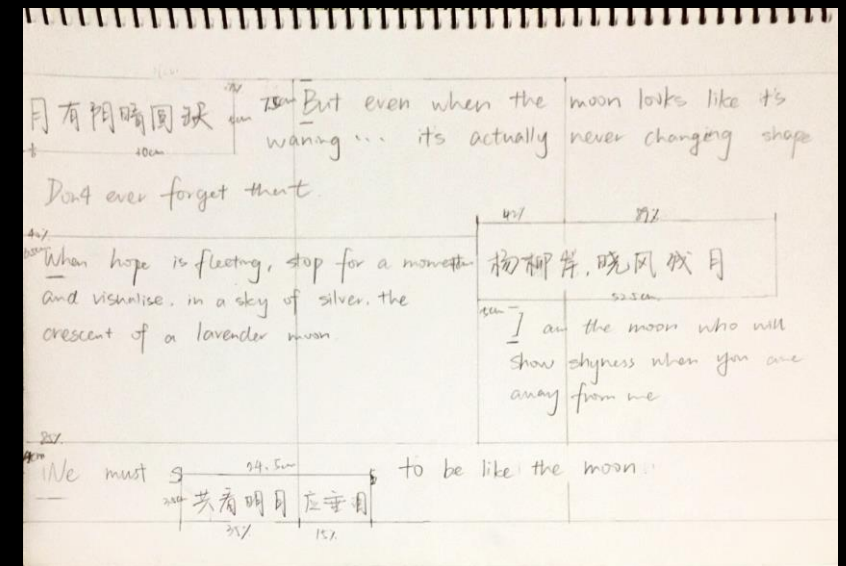 月有阴晴圆缺
10cm
7.5cm
But even when the moon looks like it's
waning... its actually never changing shape
Don4 ever forget that
40%
42%
89%
When hope is fleeting, stop for a moment
and visualise. in a sky of silver. the
crescent of a lavender moon
杨柳岸,晓风残月
52.5cm
I am the moon who will
show shyness when you are
away from me
85%
We must
34.5cm
to be like the moon.
共看明月应垂泪
35%
15%